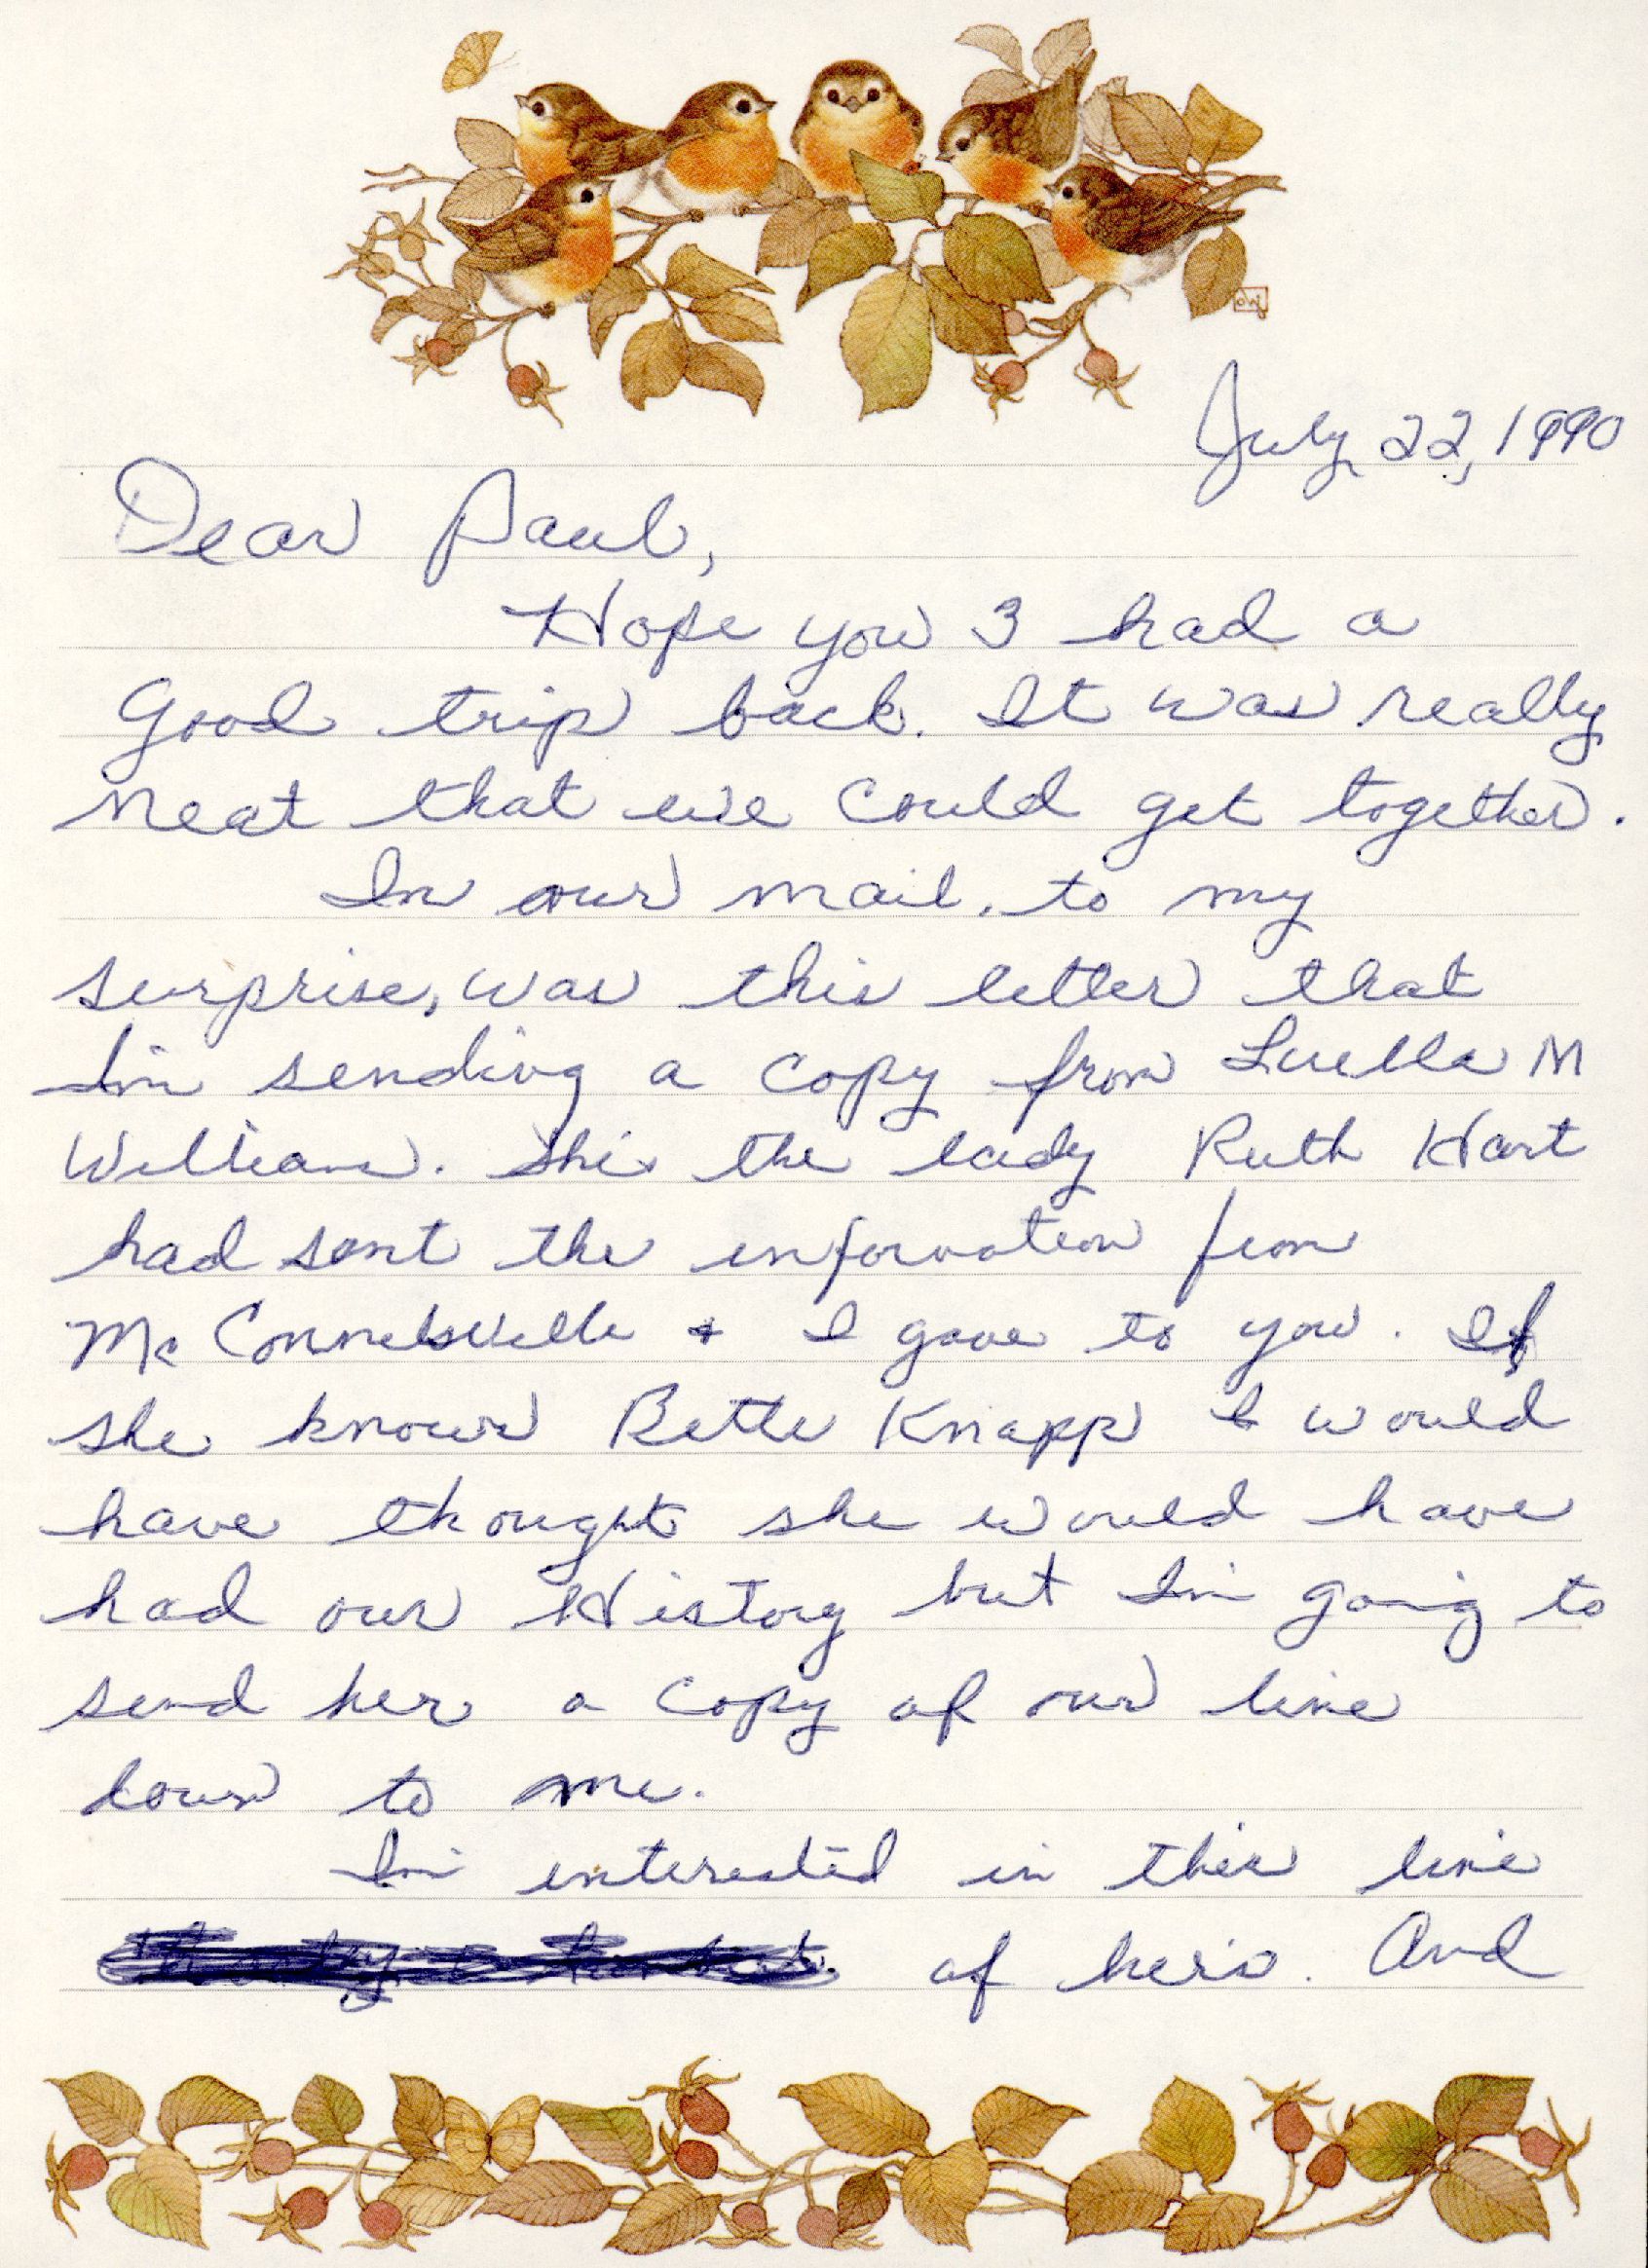 July 22, 1990
Dear Paul,
Hope you 3 had a
Good trip back. It was really
neat that we could get together.
In our mail, to my
surprise, was this letter that
I'm sending a copy from Luella M
William. She's the lady Ruth Hart
had sent the information from
McConnelsville & I gave to you. If
she knows Bette Knapp I would
have thought she would have
had our History but I'm going to
send her a copy of our line
down to me.
I'm interested in this line
of hers. And